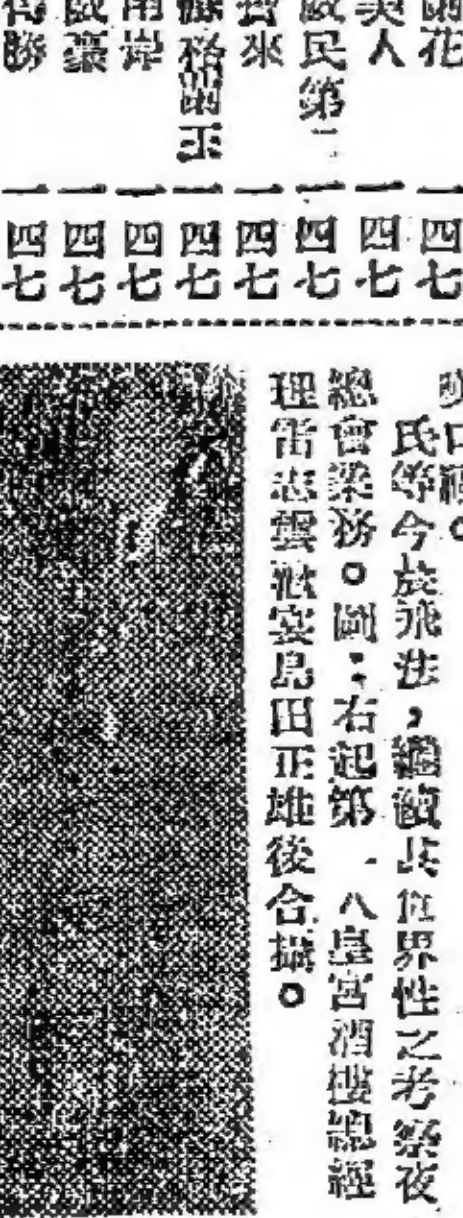 爾花
一四七
美人
一四七
啟民第二
一四七
寶來
一四七
蘇格蘭王
一四七
南岸
一四七
啟豪
一四七
得勝
一四七
口福。
氏等今於飛法,繼續其世界性之考察夜
總會業務。圖:右起第 八皇宮酒樓總經
理雷志雲歡宴島田正雄後合攝。